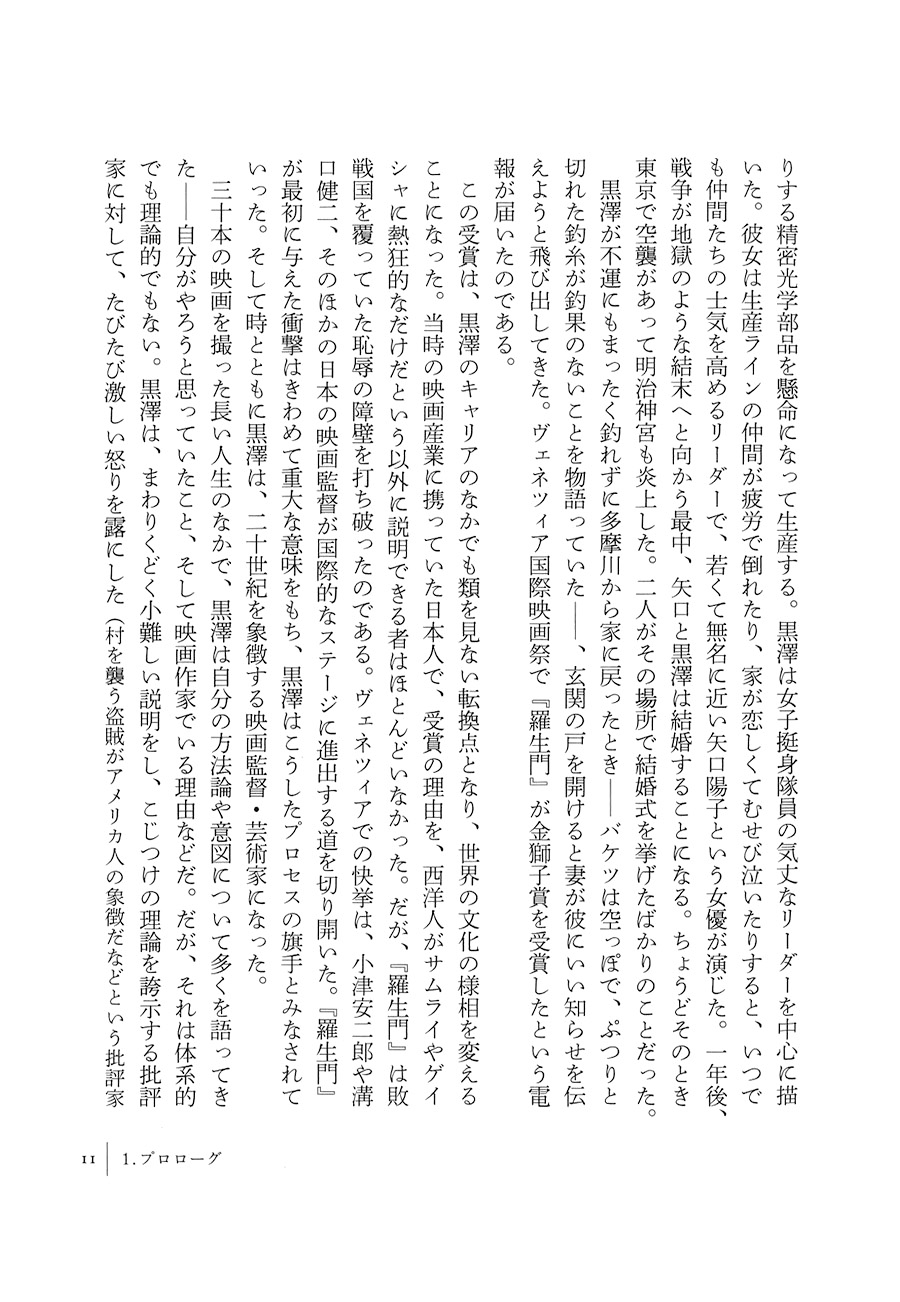 りする精密光学部品を懸命になって生産する。黒澤は女子挺身隊員の気丈なリーダーを中心に描
いた。彼女は生産ラインの仲間が疲労で倒れたり、家が恋しくてむせび泣いたりすると、いつで
も仲間たちの士気を高めるリーダーで、若くて無名に近い矢口陽子という女優が演じた。一年後、
戦争が地獄のような結末へと向かう最中、矢口と黒澤は結婚することになる。ちょうどそのとき
東京で空襲があって明治神宮も炎上した。二人がその場所で結婚式を挙げたばかりのことだった。
黒澤が不運にもまったく釣れずに多摩川から家に戻ったとき――バケツは空っぽで、ぷつりと
切れた釣糸が釣果のないことを物語っていた――、玄関の戸を開けると妻が彼にいい知らせを伝
えようと飛び出してきた。ヴェネツィア国際映画祭で『羅生門』が金獅子賞を受賞したという電
報が届いたのである。
この受賞は、黒澤のキャリアのなかでも類を見ない転換点となり、世界の文化の様相を変える
ことになった。当時の映画産業に携っていた日本人で、受賞の理由を、西洋人がサムライやゲイ
シャに熱狂的なだけだという以外に説明できる者はほとんどいなかった。だが、『羅生門』は敗
戦国を覆っていた恥辱の障壁を打ち破ったのである。ヴェネツィアでの快挙は、小津安二郎や溝
口健二、そのほかの日本の映画監督が国際的なステージに進出する道を切り開いた。『羅生門』
が最初に与えた衝撃はきわめて重大な意味をもち、黒澤はこうしたプロセスの旗手とみなされて
いった。そして時とともに黒澤は、二十世紀を象徴する映画監督・芸術家になった。
三十本の映画を撮った長い人生のなかで、黒澤は自分の方法論や意図について多くを語ってき
た――自分がやろうと思っていたこと、そして映画作家でいる理由などだ。だが、それは体系的
でも理論的でもない。黒澤は、まわりくどく小難しい説明をし、こじつけの理論を誇示する批評
家に対して、たびたび激しい怒りを露にした（村を襲う盗賊がアメリカ人の象徴だなどという批評家
11 1.プロローグ